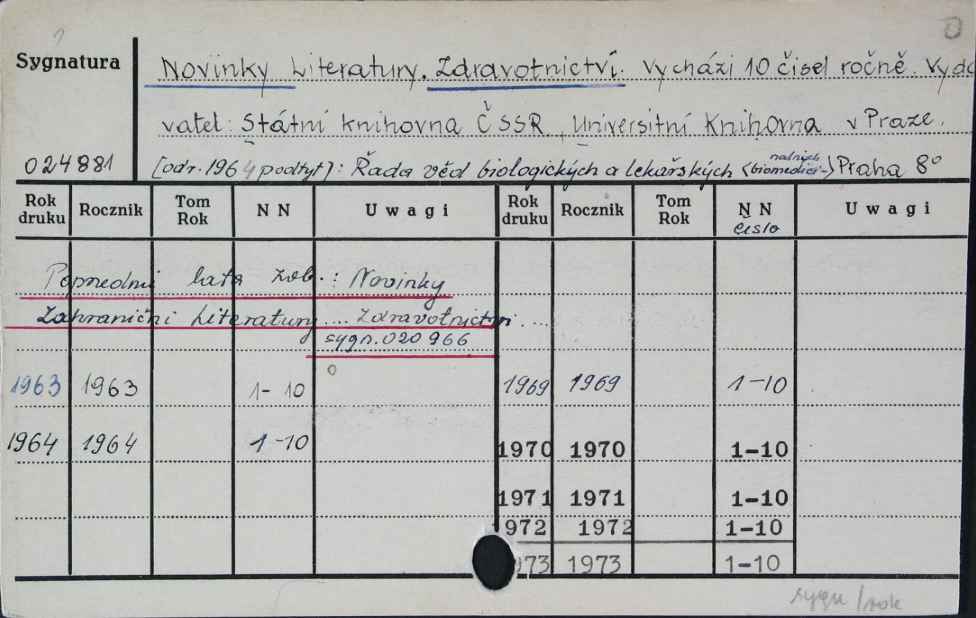 Sygnatura
Novinky Literatury. Zdravotnictví. Vychází 10 čísel ročně. Vyda
vatel: Státní knihovna ČSSR, Universitní Knihovna v Praze.
024881 [od r. 1964 podtyt]: Řada věd biologických a lekařských (biomedici-nalnych) Praha 8°
Rok druku Rocznik Tom Rok N N Uwagi Rok druku Rocznik Tom Rok N N čislo Uwagi
Poprzednie lata zob.: Novinky
Zahraniční Literatury ... Zdravotnictvi ...
sygn. 020 966
1963 1963 1-10 1969 1969 1-10
1964 1964 1-10 1970 1970 1-10
1971 1971 1-10
1972 1972 1-10
973 1973 1-10
sygn / rok